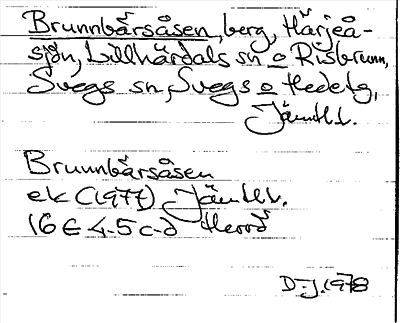 Brunnbärsåsen, berg, Härjeå-
sjön, Lillhärdals sn o Risbrunn,
Svegs sn, Svegs o Hedetg,
Jämtl.l.
Brunnbärsåsen
ek (1977) Jämtl.l.
16 E 4-5 c-d Herrö
D-J.1978